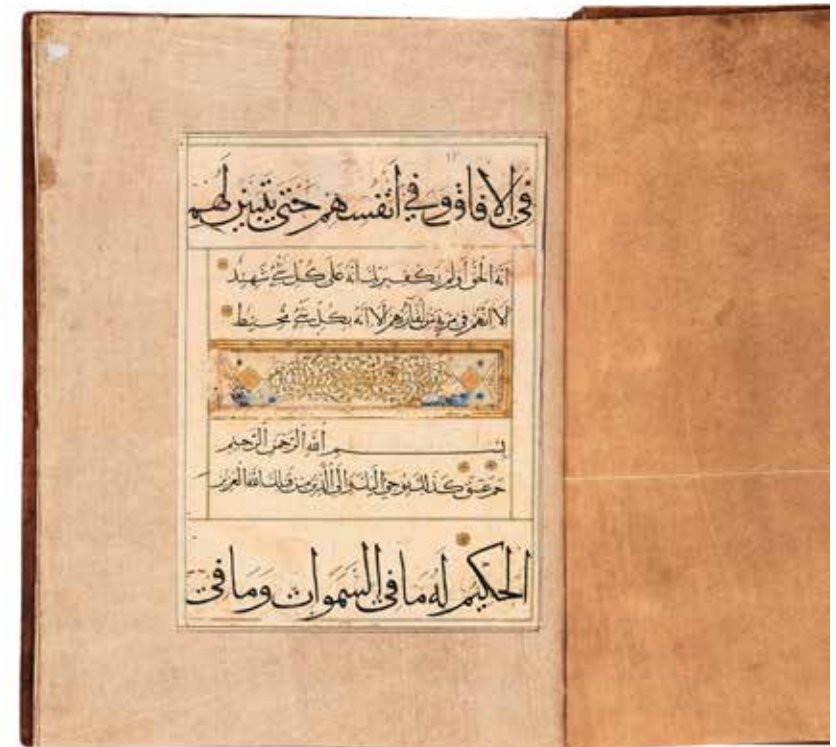 في الافاق وفي انفسهم حتى يتبين لهم
انه الحق اولم يكف بربك انه على كل شيء شهيد
الا انهم في مرية من لقاء ربهم الا انه بكل شيء محيط
بسم الله الرحمن الرحيم
حم عسق كذلك يوحي اليك والى الذين من قبلك الله العزيز
الحكيم له ما في السموات وما في